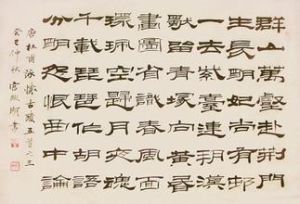 群山萬壑赴荊門
生長明妃尚有邨
一去紫臺連朔漠
獨留青冢向黃昏
畫圖省識春風面
環珮空歸月夜魂
千載琵琶作胡語
分明怨恨曲中論
唐杜甫詠懷古蹟五首之三
仲秋 書